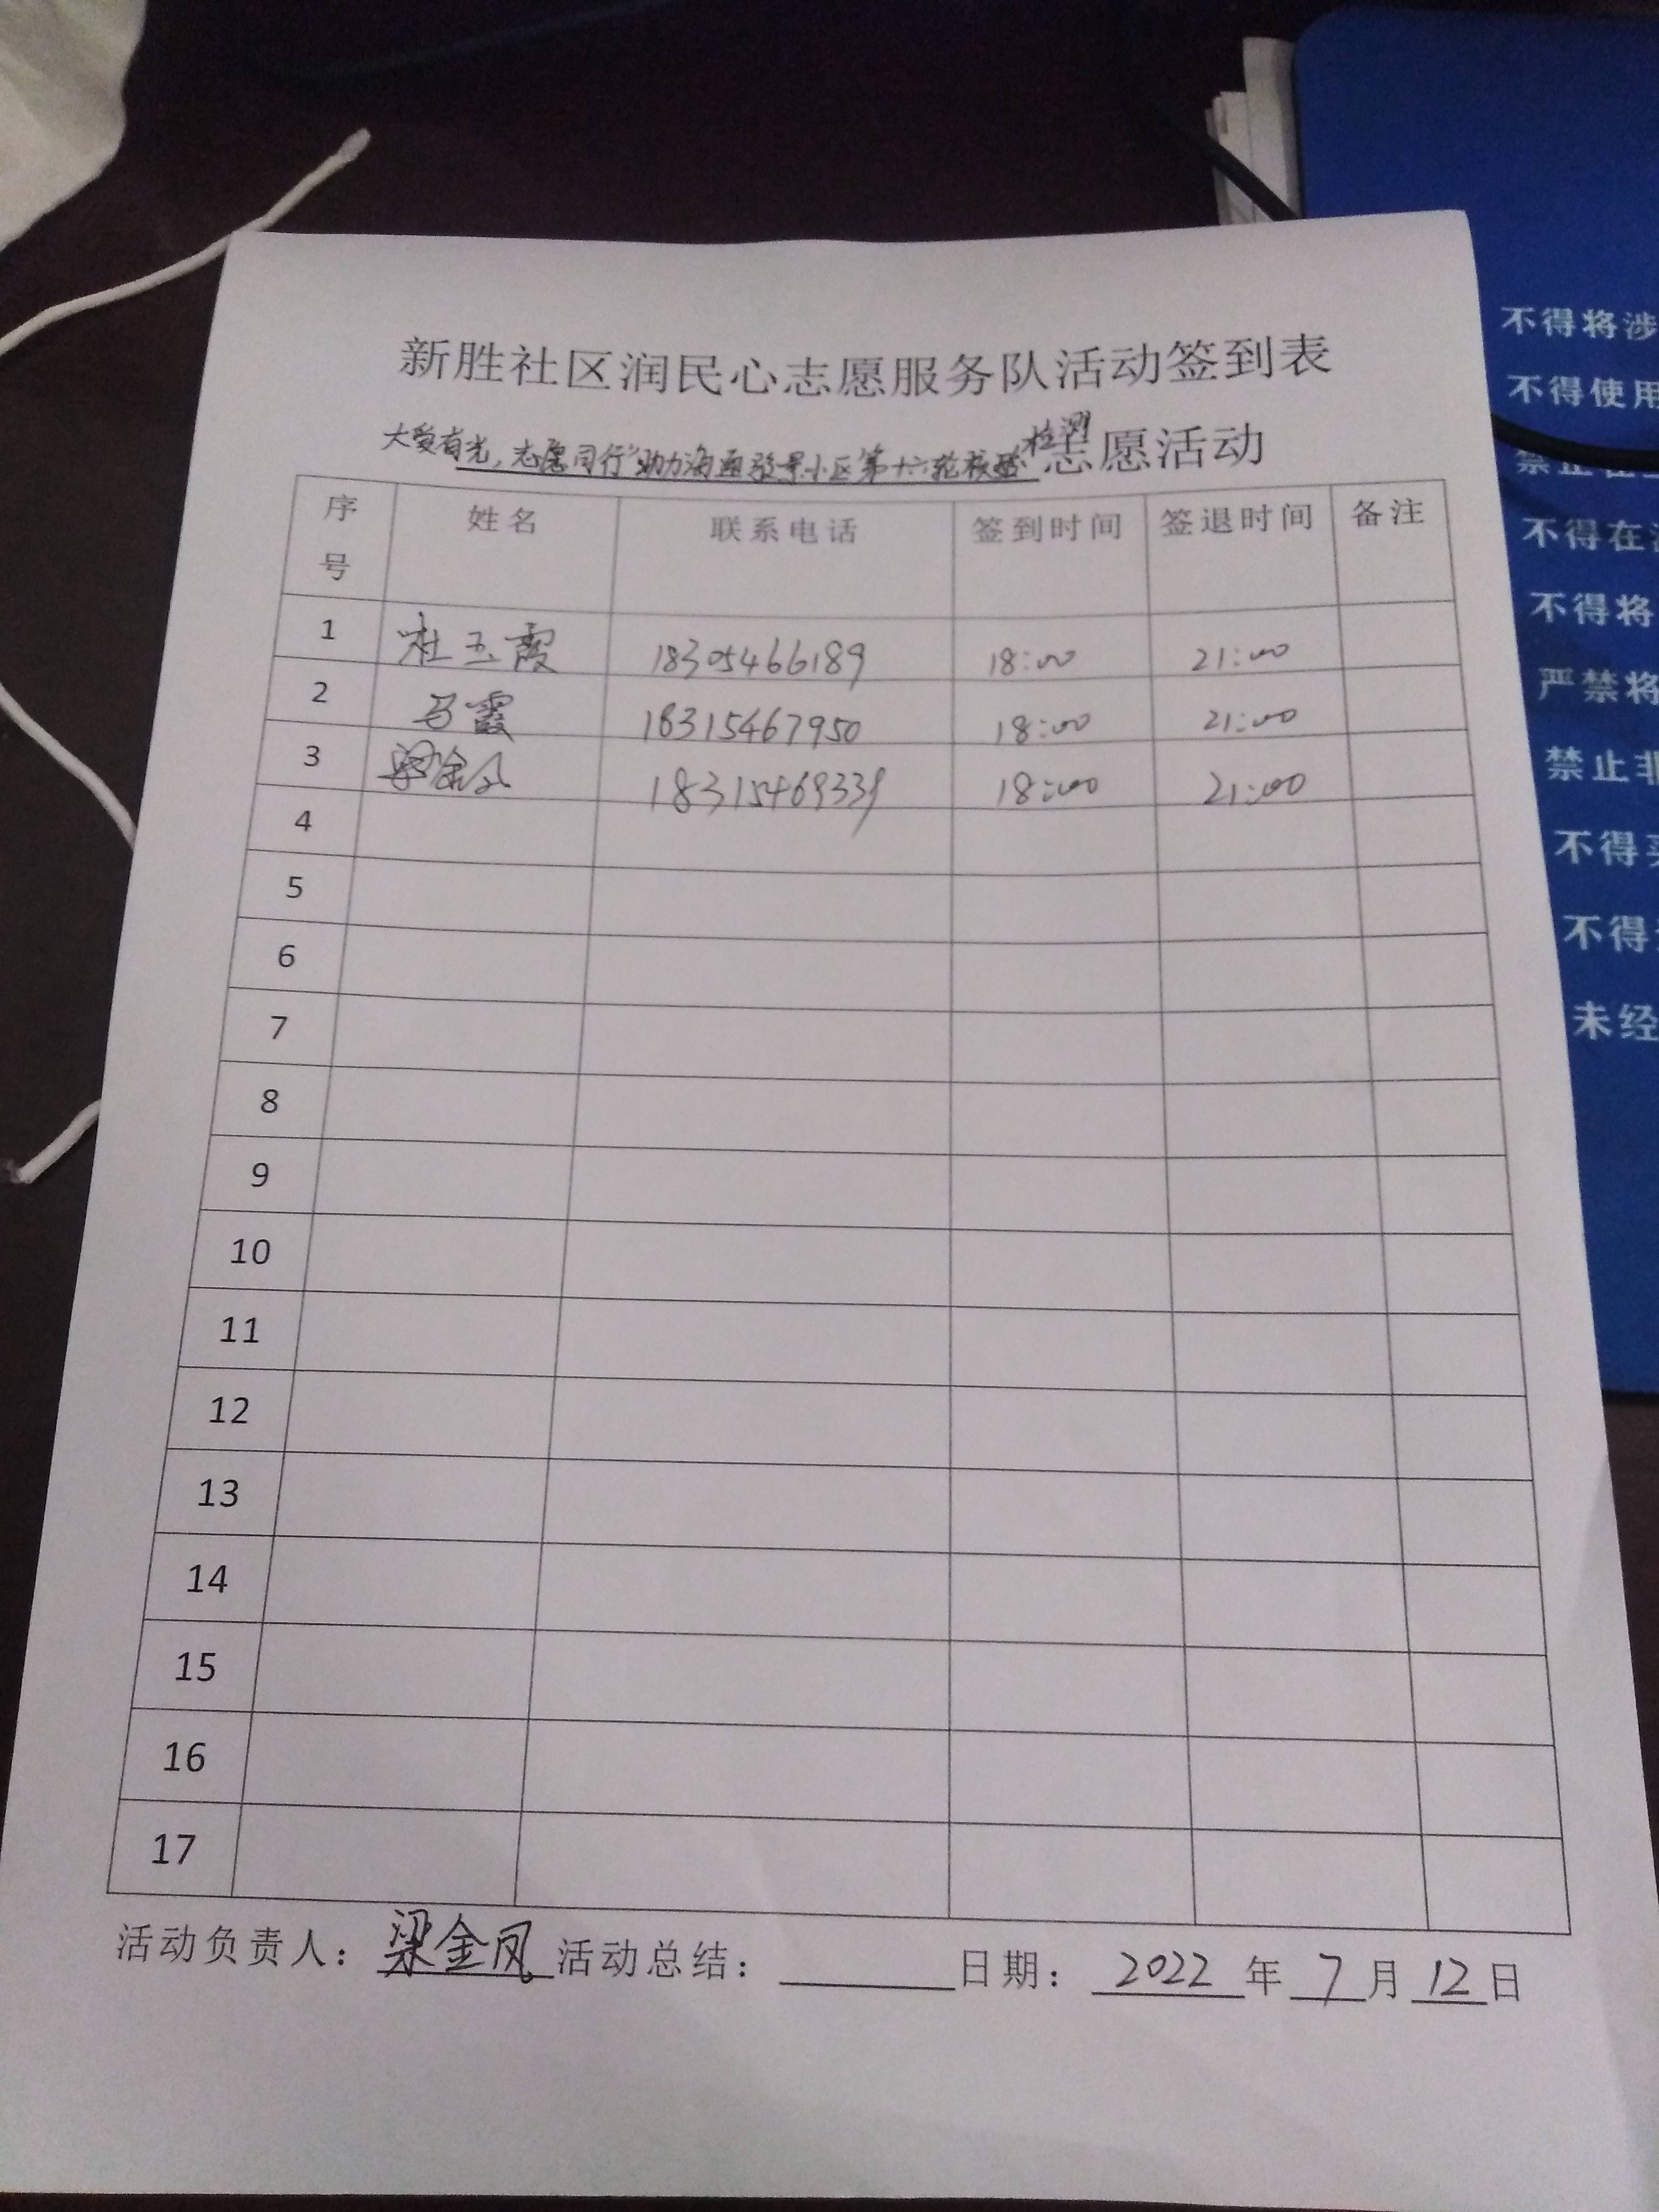 新胜社区润民心志愿服务队活动签到表
大爱有光,志愿同行"助力海通骏景小区第十六轮核酸检测志愿活动
序号 姓名 联系电话 签到时间 签退时间 备注
1 杜玉霞 18305466189 18:00 21:00
2 马霞 18315467950 18:00 21:00
3 梁金凤 18315469339 18:00 21:00
4
5
6
7
8
9
10
11
12
13
14
15
16
17
活动负责人:梁金凤 活动总结: 日期:2022年7月12日
不得将涉
不得使用
禁止在
不得在
不得将
严禁将
禁止非
不得
不得
未经